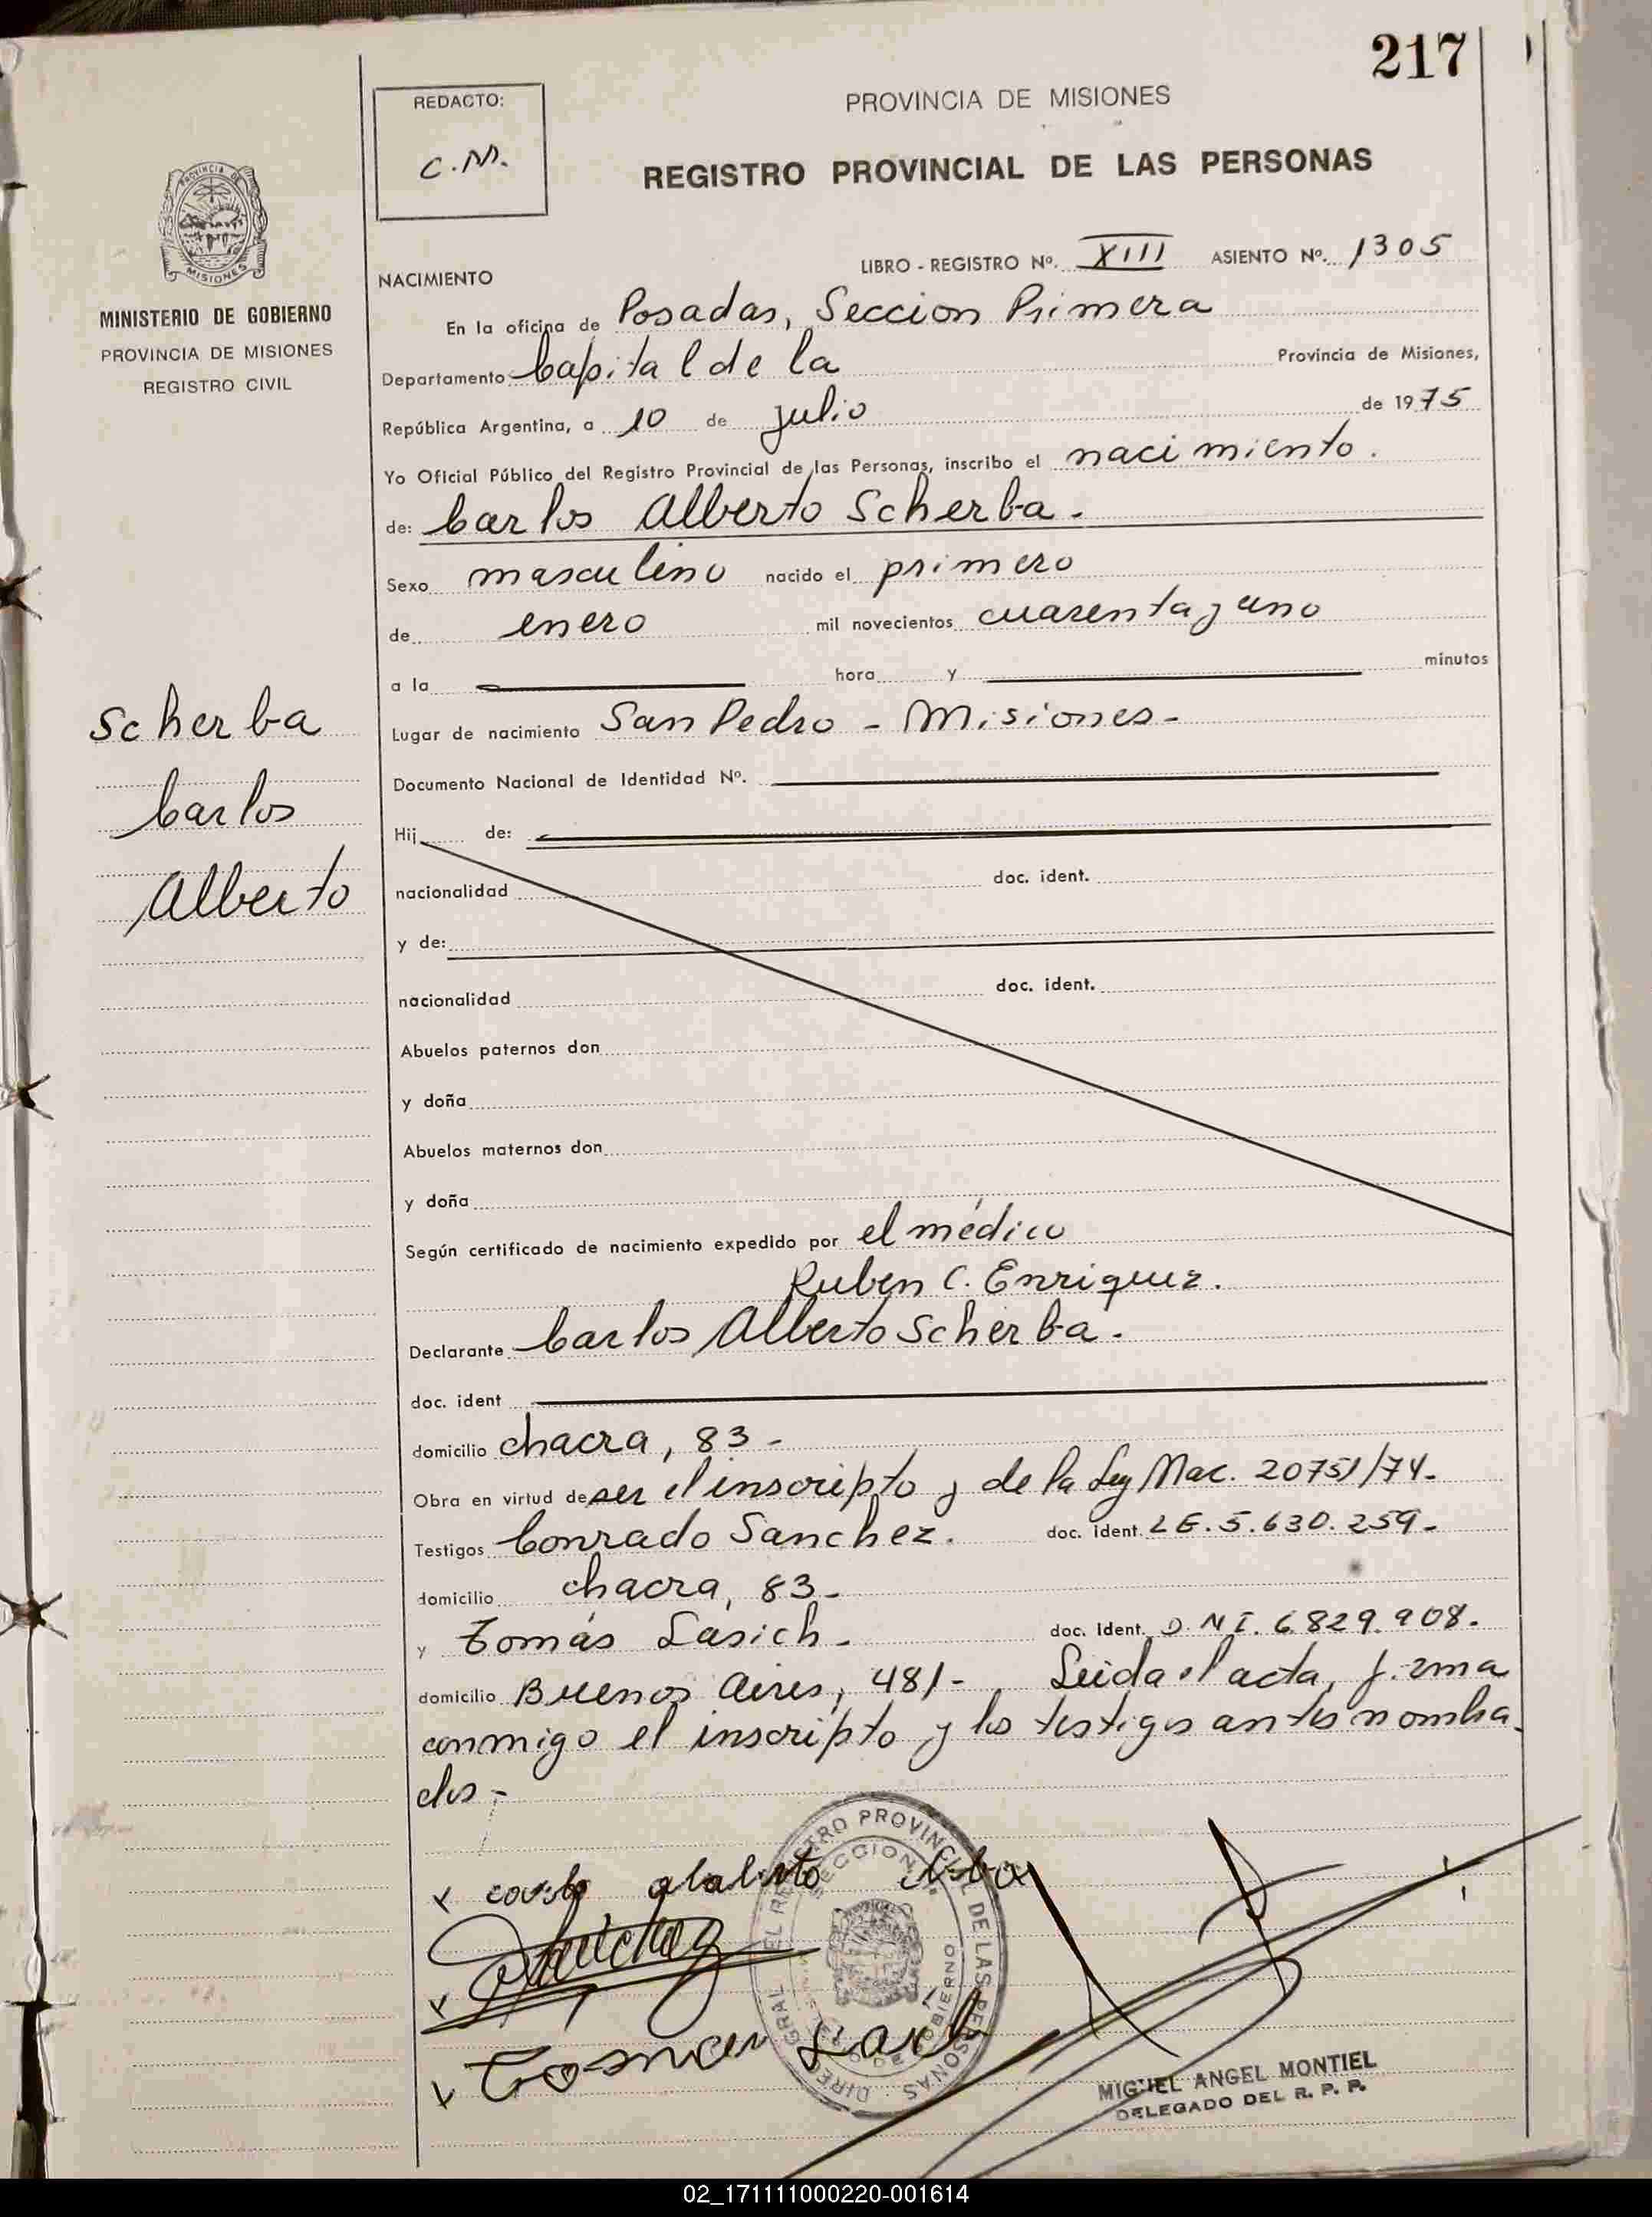 217
REDACTO:
C.M.
PROVINCIA DE MISIONES
REGISTRO PROVINCIAL DE LAS PERSONAS
PROVINCIA DE
MISIONES
MINISTERIO DE GOBIERNO
PROVINCIA DE MISIONES
REGISTRO CIVIL
LIBRO - REGISTRO Nº. XIII ASIENTO Nº. 1305
NACIMIENTO
En la oficina de Posadas, Seccion Primera
Departamento Capital de la Provincia de Misiones,
República Argentina, a 10 de julio de 1975
Yo Oficial Público del Registro Provincial de las Personas, inscribo el nacimiento.
de: Carlos Alberto Scherba.
Sexo masculino nacido el primero
de enero mil novecientos cuarenta y uno
a la hora y minutos
Scherba
Carlos
Alberto
Lugar de nacimiento San Pedro - Misiones-
Documento Nacional de Identidad Nº.
Hij de:
nacionalidad doc. ident.
y de:
nacionalidad doc. ident.
Abuelos paternos don
y doña
Abuelos maternos don
y doña
Según certificado de nacimiento expedido por el médico
Ruben C. Enriquez.
Declarante Carlos Alberto Scherba.
doc. ident
domicilio chacra, 83-
Obra en virtud de ser el inscripto y de la Ley Nac. 20751/74-
Testigos Conrado Sanchez. doc. ident. LE. 5.630.259-
domicilio chacra, 83-
y Tomás Lasich- doc. ident. D.N.I. 6.829.908.
domicilio Buenos Aires, 481- Leida el acta, firma
conmigo el inscripto y los testigos antes nombra
dos-
DIRE GRAL EL RE TRO PROVINC L DE LAS PERSONAS
SECCION
GOBIERNO
MIGUEL ANGEL MONTIEL
DELEGADO DEL R. P. P.
02_171111000220-001614